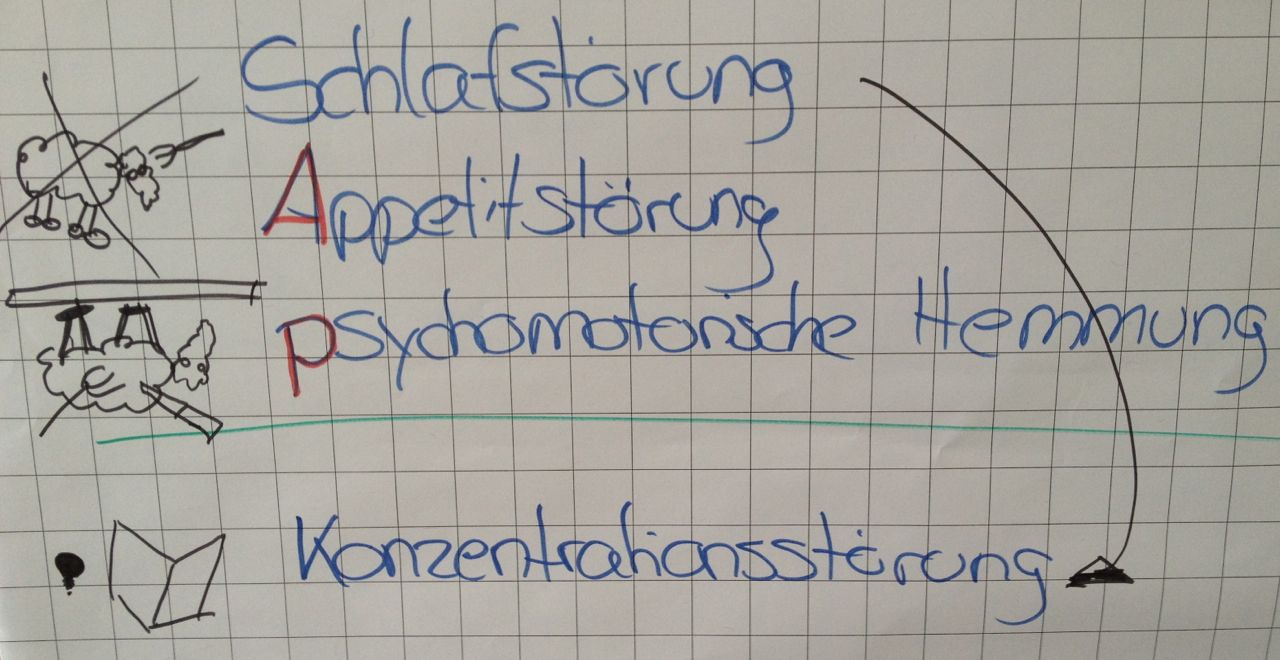 Schlafstörung
Appetitstörung
psychomotorische Hemmung
Konzentrationsstörung